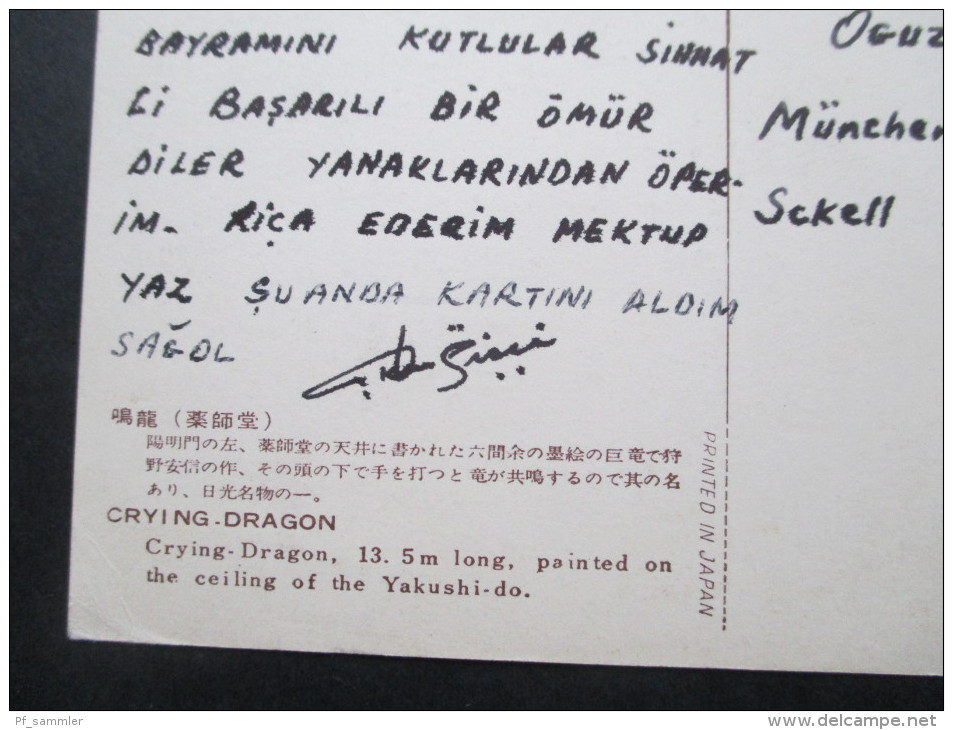 BAYRAMINI KUTLULAR SIHHAT
Lİ BAŞARILI BİR ÖMÜR
DİLER YANAKLARINDAN ÖPER-
İM. RİÇA EDERİM MEKTUP
YAZ ŞUANDA KARTINI ALDIM
SAĞOL
OĞUZ
München
Sckell
鳴龍（薬師堂）
陽明門の左、薬師堂の天井に書かれた六間余の墨絵の巨竜で狩
野安信の作、その頭の下で手を打つと竜が共鳴するので其の名
あり、日光名物の一。
CRYING-DRAGON
Crying-Dragon, 13.5m long, painted on
the ceiling of the Yakushi-do.
PRINTED IN JAPAN
Pf_sammler
www.delcampe.net